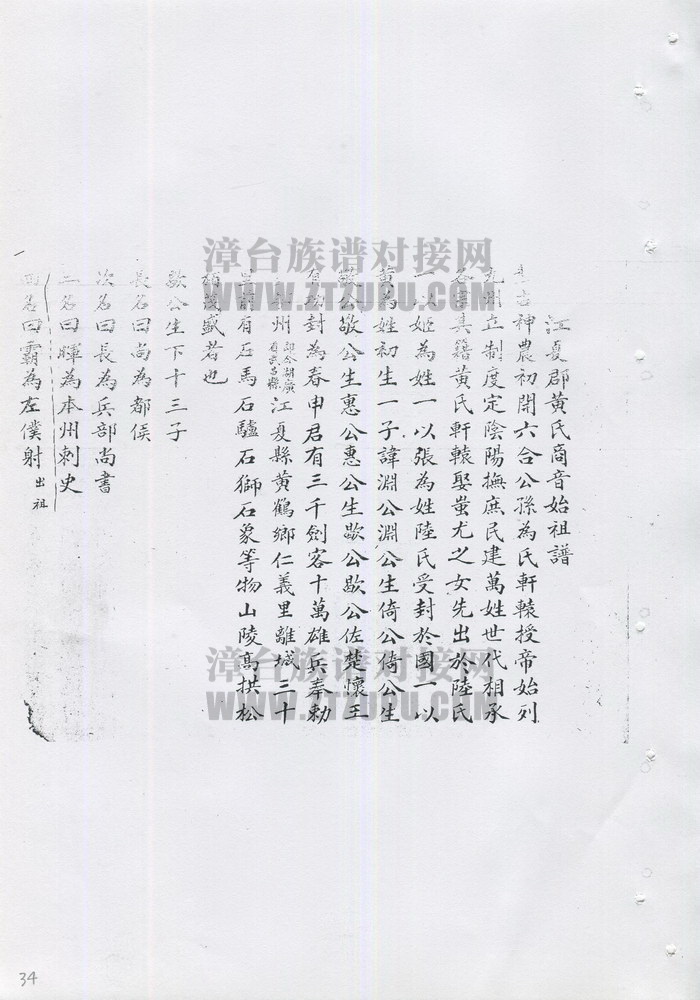 江夏郡黃氏商音始祖譜
古神農初開六合公孫為氏軒轅授帝始列
九州立制度定陰陽撫庶民建萬姓世代相承
其籍黃氏軒轅娶蚩尤之女先出於陸氏
一以姬為姓一以張為姓陸氏受封於國一以
黃為姓初生一子諱淵公淵公生倚公倚公生
敬公敬公生惠公惠公生歇公歇公佐楚懷王
有功封為春申君有三千劍客十萬雄兵奉勅
州即今湖廣有武昌縣江夏縣黃鶴鄉仁義里離城三十
里前有石馬石驢石獅石象等物山陵高拱松
栢茂盛者也
歇公生下十三子
長名曰尚為都侯
次名曰長為兵部尚書
三名曰暉為本州刺史
四名曰霸為左僕射出祖
34
漳台族谱对接网
WWW.ZTZUPU.COM
漳台族谱对接网
WWW.ZTZUPU.COM